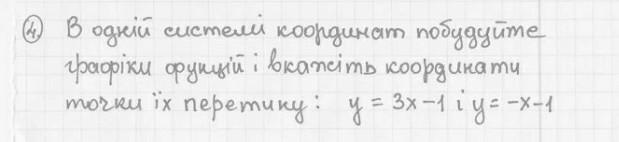 4. В одній системі координат побудуйте
графіки функцій і вкажіть координати
точки їх перетину: y = 3x-1 і y = -x-1